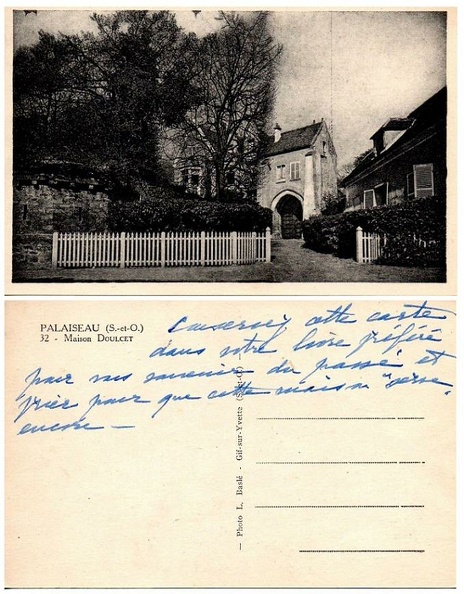 PALAISEAU (S.-et-O.)
32 - Maison DOULCET
Conservez cette carte
dans votre livre préféré
pour vous souvenir du passé et
prier pour que cette maison "serve
encore —
— Photo L. Baslé - Gif-sur-Yvette (S.-et-O.)